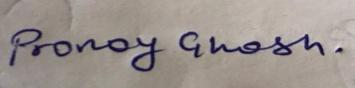 Pronoy Ghosh.